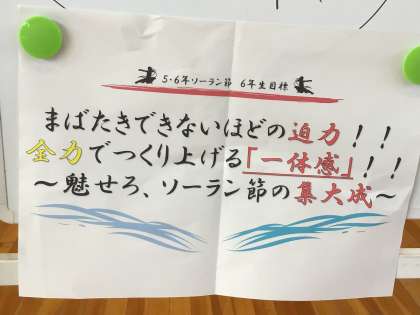 5・6年ソーラン節 6年生目標
まばたきできないほどの迫力！！
全力でつくり上げる「一体感」！！
～魅せろ、ソーラン節の集大成～